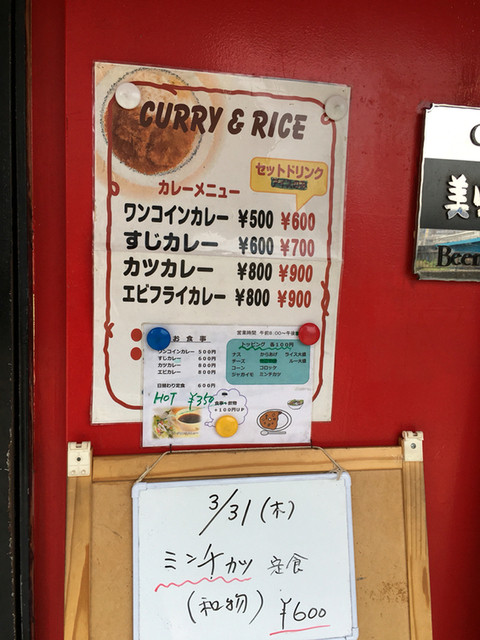 CURRY & RICE
セットドリンク
カレーメニュー
ワンコインカレー ¥500 ¥600
すじカレー ¥600 ¥700
カツカレー ¥800 ¥900
エビフライカレー ¥800 ¥900
お食事
ワンコインカレー 500円
すじカレー 600円
カツカレー 800円
エビカレー 800円
日替わり定食 600円
HOT ¥350
営業時間
トッピング 各100円
ナス からあげ ライス大盛
チーズ ルー大盛
コーン コロッケ
ジャガイモ ミンチカツ
+100円UP
美
Beer
3/31(木)
ミンチカツ 定食
(和物)
¥600